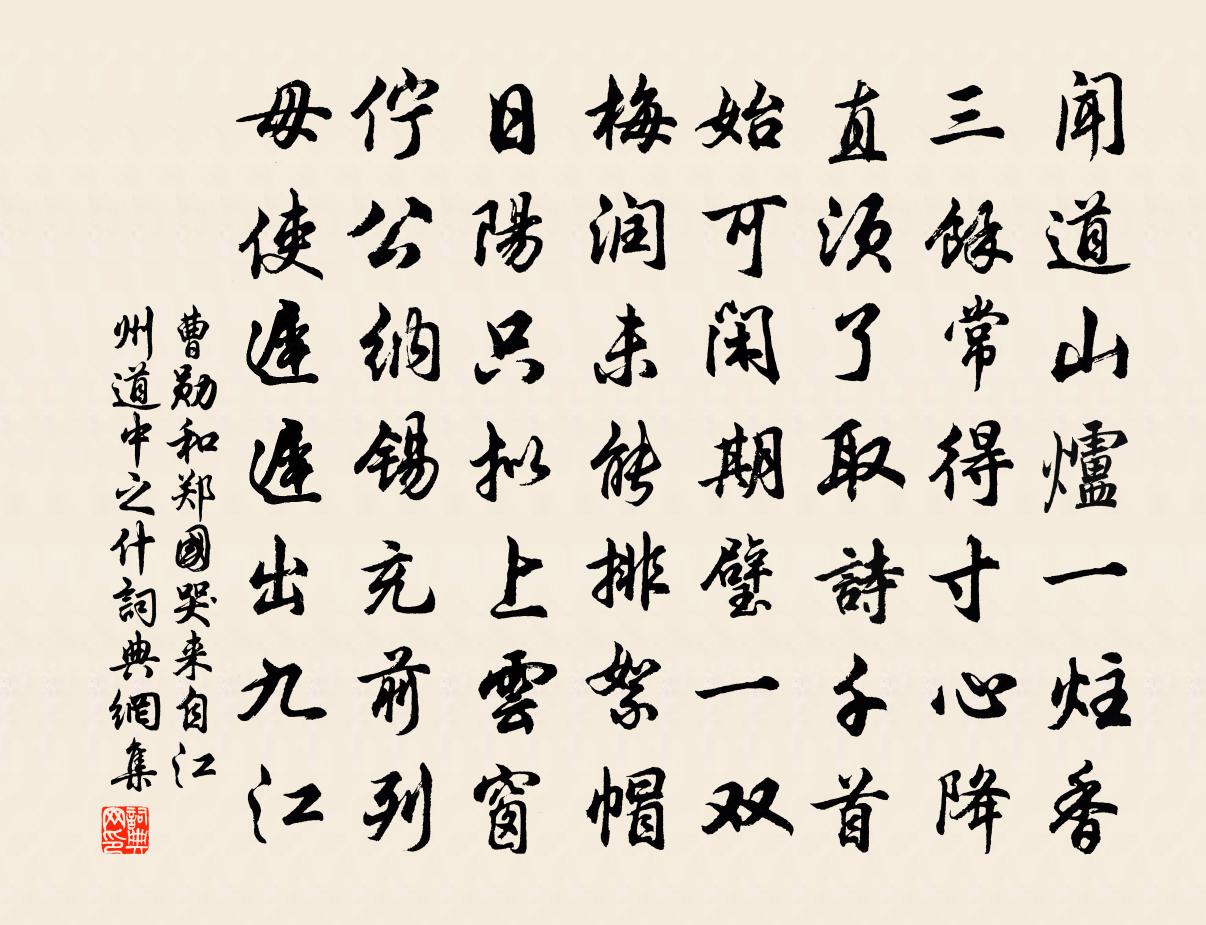 闻道山爐一炷香
三餘常得寸心降
直须了取詩千首
始可闲期璧一双
梅润未能排絮帽
日陽只拟上雲窗
佇公纳锡充前列
毋使遲遲出九江
曹勋和郑國哭来自江
州道中之什詞典網集
詞典网印